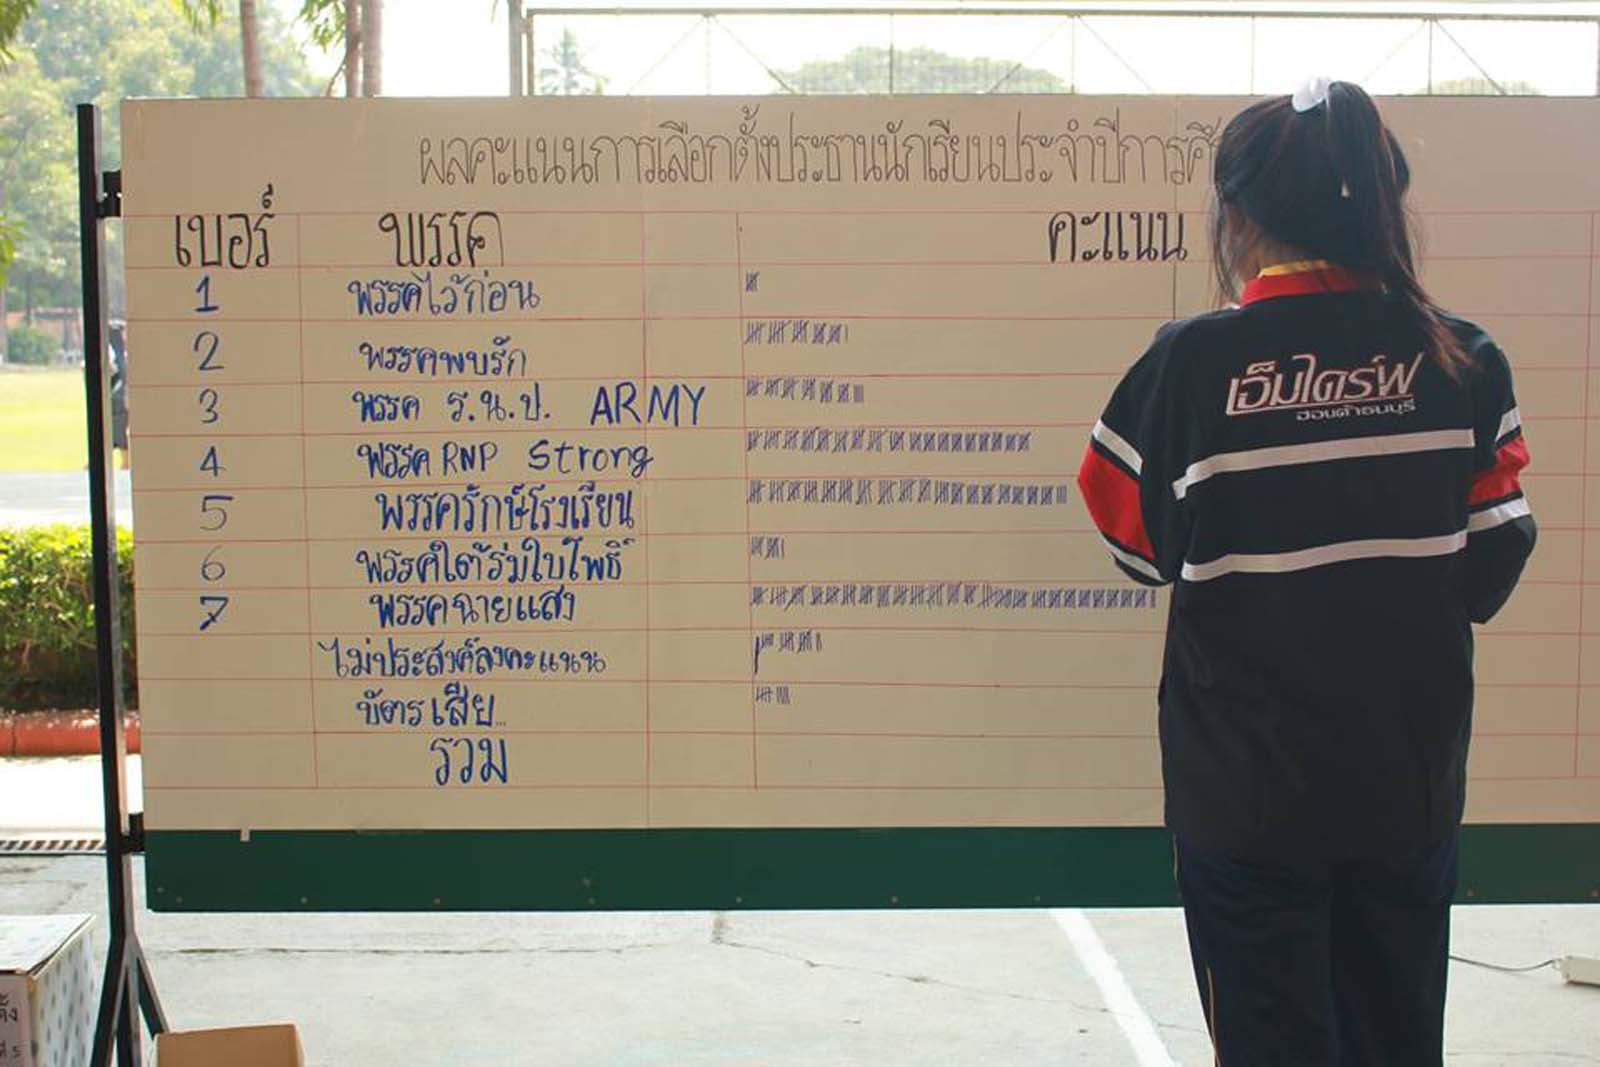 ผลคะแนนการเลือกตั้งประธานนักเรียนประจำปีการศึ
เบอร์ พรรค คะแนน
1 พรรคไว้ก่อน
2 พรรคพบรัก
3 พรรค ร.น.ป. ARMY
4 พรรค RNP Strong
5 พรรครักษ์โรงเรียน
6 พรรคใต้ร่มใบโพธิ์
7 พรรคฉายแสง
ไม่ประสงค์ลงคะแนน
บัตรเสีย...
รวม
เอ็มไดร์ฟ
ฮอนด้าธนบุรี